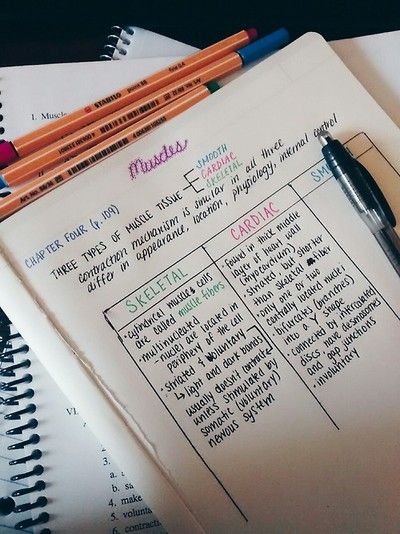 STABILO point 88
1. Muscle
Muscles
SMOOTH
CARDIAC
SKELETAL
CHAPTER FOUR (p. 109)
THREE TYPES OF MUSCLE TISSUE
contraction mechanism is similar in all three
differ in appearance, location, physiology, internal control
SKELETAL
• cylindrical muscle cells
are called muscle fibers
• multinucleated
nuclei are located in
periphery of the cell
• striated & voluntary
↳ light and dark bands
usually doesn't contract
unless stimulated by
somatic (voluntary)
nervous system
CARDIAC
• found in thick middle
layer of heart wall
(myocardium)
• striated but shorter
than skeletal fiber
• only one or two
centrally located nuclei
• bifurcates (branches)
into a Y shape
• connected by intercalated
discs have desmosomes
and gap junctions
• involuntary
SM
VI.
3.
a.
b. sa
4. make
5. volunta
6. contracti